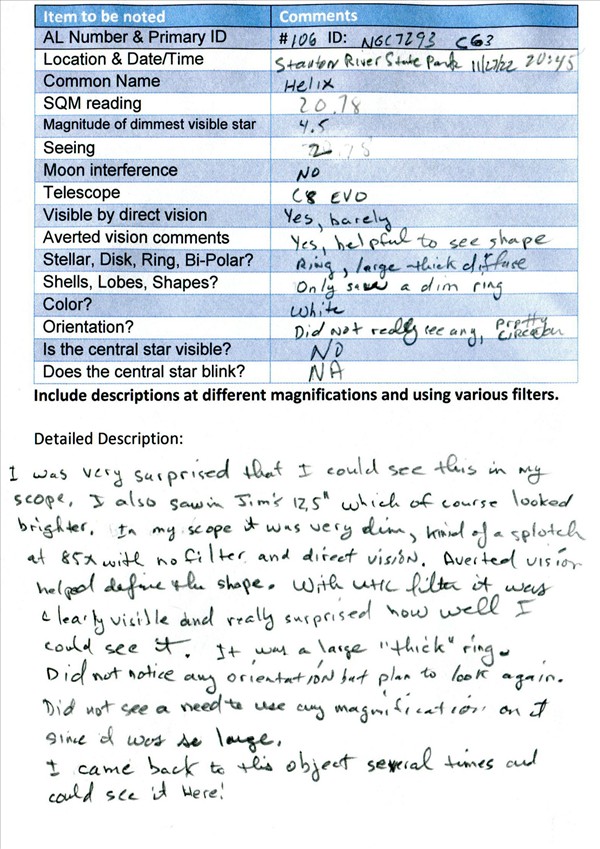 Item to be noted Comments
AL Number & Primary ID #106 ID: NGC7293 C63
Location & Date/Time Staunton River State Park 11/27/22 20:45
Common Name Helix
SQM reading 20.78
Magnitude of dimmest visible star 4.5
Seeing 2
Moon interference NO
Telescope C8 EVO
Visible by direct vision Yes, barely
Averted vision comments Yes, helpful to see shape
Stellar, Disk, Ring, Bi-Polar? Ring, large thick diffuse
Shells, Lobes, Shapes? Only saw a dim ring
Color? White
Orientation? Did Not really see any, pretty circular
Is the central star visible? NO
Does the central star blink? NA
Include descriptions at different magnifications and using various filters.
Detailed Description:
I was very surprised that I could see this in my
scope. I also saw in Jim's 12.5" which of course looked
brighter. In my scope it was very dim, kind of a splotch
at 85x with no filter and direct vision. Averted vision
helped define the shape. With UHC filter it was
clearly visible and really surprised how well I
could see it. It was a large "thick" ring.
Did not notice any orientation but plan to look again.
Did not see a need to use any magnification on it
since it was so large.
I came back to this object several times and
could see it Here!